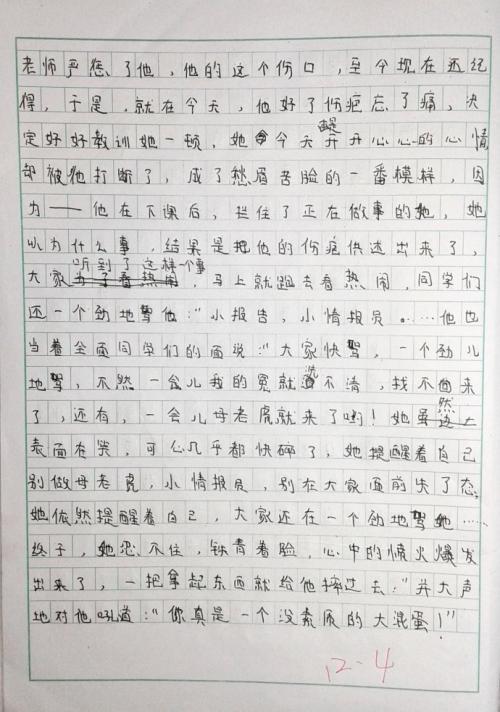 老师严惩了他，他的这个伤口，至今现在还纪
得，于是，就在今天，他好了伤疤忘了痛，决
定好好教训她一顿，她今天是开开心心的心情
却被他打断了，成了愁眉苦脸的一番模样，因
为——他在下课后，拦住了正在做事的她，她
以为什么事，结果是把他的伤疤供述出来了，
大家听到了这样一个事，马上就跑去看热闹，同学们
还一个劲地骂他：“小报告，小情报员……他也
当着全面同学们的面说：“大家快骂，一个劲儿
地骂，不然一会儿我的冤就洗不清，找不回来
了，还有，一会儿母老虎就来了哟！她虽然
表面在哭，可心几乎都快碎了，她提醒着自己
别做母老虎，小情报员，别在大家面前失了态，
她依然提醒着自己，大家还在一个劲地骂她……
终于，她忍不住，铁青着脸，心中的愤火爆发
出来了，一把拿起东西就给他摔过去：“并大声
地对他吼道：“你真是一个没素质的大混蛋！”
12-4